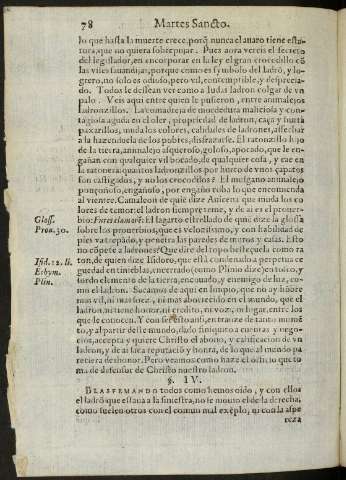 78 Martes Sancto.
lo que hasta la muerte crece, porq̃ nunca el auaro tiene esta-
tura, que no quiera sobrepujar. Pues aora vereis el secreto
del legislador, en encorporar en la ley el gran crocodillo cõ
las viles sauandijas, porque como es symbolo del ladrõ, y lo-
grero, no solo es odioso, pero vil, contemptible, y desprecia-
do. Todos le dessean ver como a Iudas ladron colgar de vn
palo. Veis aqui entre quien le pusieron, entre animalejos
ladronzillos. La comadreja de mordedura maliciosa y con-
tagiosa aguda en el oler, propriedad de ladron, caça y hurta
paxarillos, muda los colores, calidades de ladrones, assechar
a la hazienduela de los pobres, disfrazarse. El ratonzillo hijo
de la tierra, animalejo asqueroso, goloso, apocado, que le en-
gañan con qualquier vil bocado, de qualquier cosa, y cae en
la ratonera: quantos ladronzillos por hurto de vnos çapatos
son castigados, y no los crocodilos? El musgano animalejo
ponçoñoso, engañoso, por engaño roba lo que encomienda
al vientre. Camaleon de quiē dize Auicena que muda los co-
lores de temor: el ladron siempre teme, y de ai es el prouer-
bio: Fures clamorē: El lagarto estrellado de quiē dize la glossa
sobre los prouerbios, que es velocissimo, y con habilidad de
pies va trepãdo, y penetra las paredes de muros y casas. Esto
no cõpete a ladrones? Que dire del topo bestiezuela como ra
ton, de quien dize Isidoro, que està condenado a perpetua ce
guedad en tinieblas, encerrado (como Plinio dize) en tosco, y
sordo elemento de la tierra, encouado, y enemigo de luz, co-
mo el ladron. Sacamos de aqui en limpio, que no ay hõbre
mas vil, ni mas soez, ni mas aborrecido en el mundo, que el
ladron, ni tiene honor, ni credito, ni voz, ni lugar, entre los
que le conocen. Y con ser esto assi, en trance de tanto momẽ
to, y al partir deste mundo, dado finiquito a cuentas y nego-
cios, accepta y quiere Christo el abono, y calificacion de vn
ladron, y de ai saca reputaciõ y honra, de lo que al mundo pa
reciera deshonor. Pero veamos como haze el oficio que to
ma de defensor de Christo nuestro ladron.
§. IV.
BLASFEMANDO todos como hemos oido, y con ellos
el ladrõ que estaua a la siniestra, no se mouio el de la derecha,
como suelen otros con el comun mal exẽplo, ni con la aspe
reza
Gloss.
Prou. 30.
Isid. 12. li.
Ethym.
Plin.